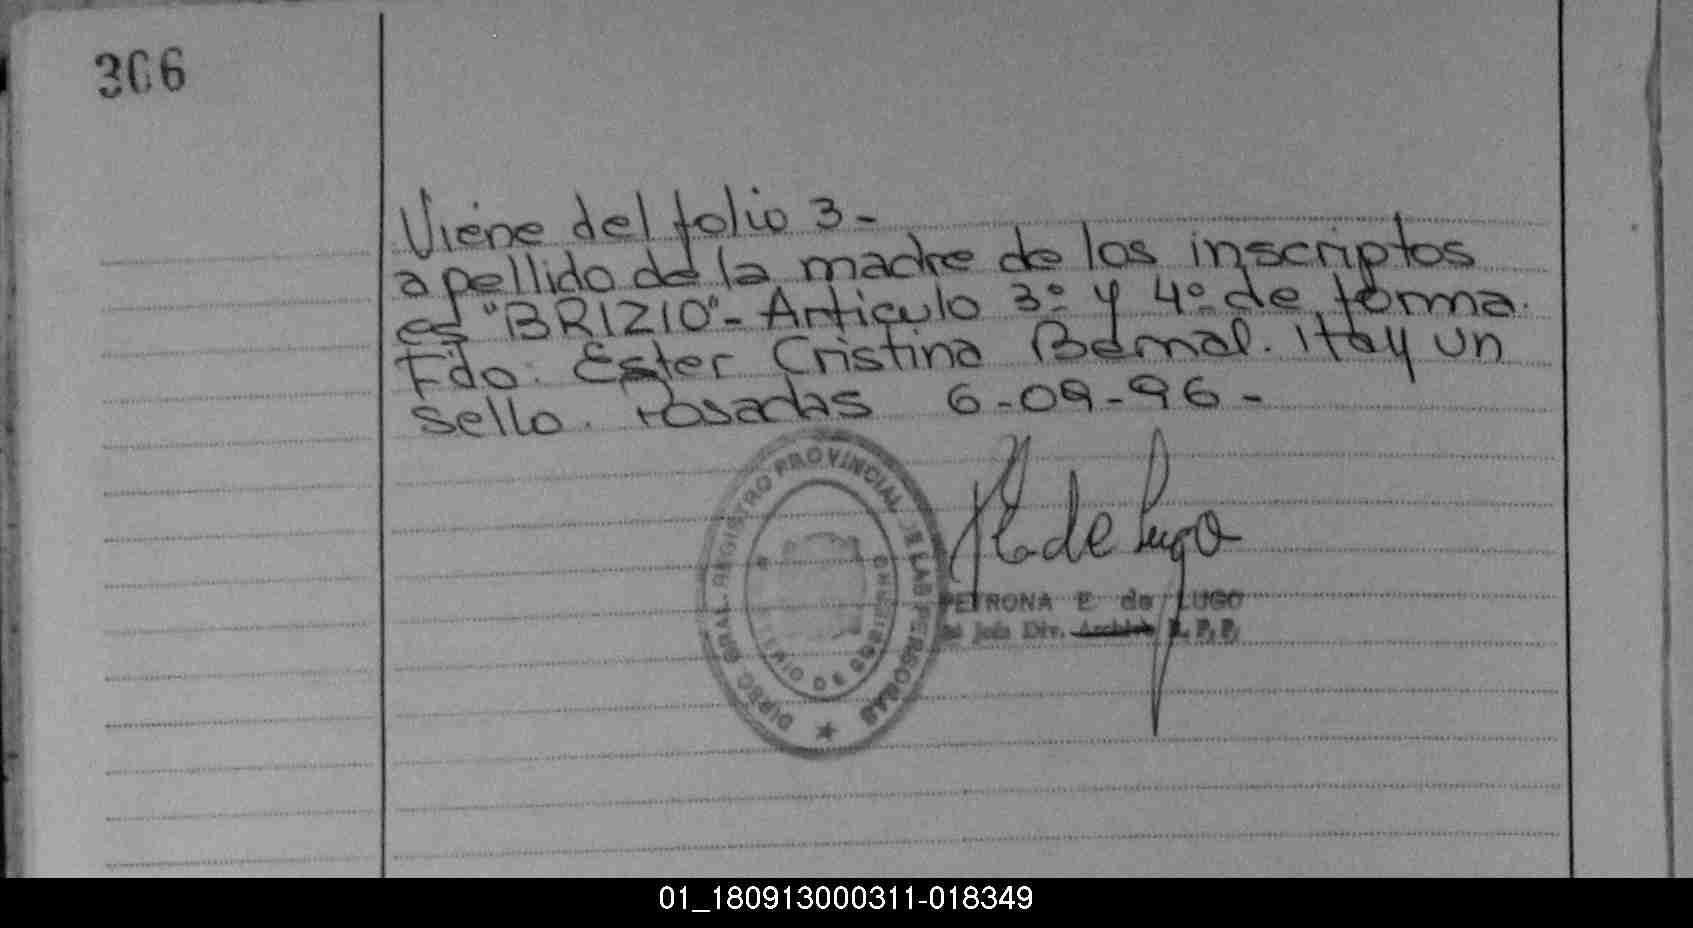 306
Viene del folio 3-
apellido de la madre de los inscriptos
es "BRIZIO"- Articulo 3° y 4° de forma.
Fdo. Ester Cristina Bernal. Hay un
sello. Posadas 6-09-96-
DIREC. GRAL. REGISTRO PROVINCIAL DE LAS PERSONAS
PETRONA E de LUGO
Jefa Div. Archivo R. P. P.
01_180913000311-018349